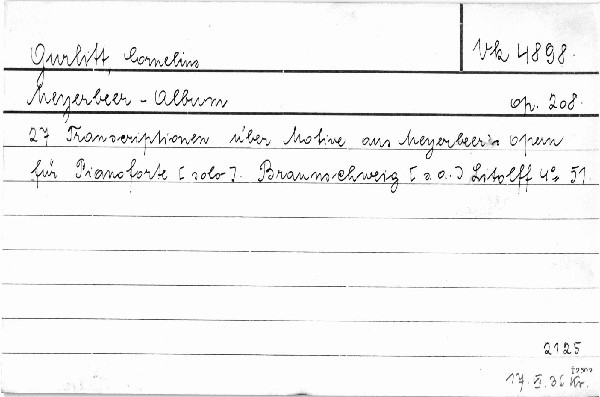 Gurlitt, Cornelius
Vk 4898.
Meyerbeer - Album op. 208.
27 Transcriptionen über Motive aus Meyerbeers Opern
für Pianoforte [solo]. Braunschweig [s.a.] Litolff 4° 51
2125
17. II. 36 Kr.